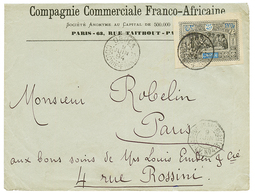 Compagnie Commerciale Franco-Africaine
SOCIÉTÉ ANONYME AU CAPITAL DE 500,000
PARIS - 68, RUE TAITBOUT - PA
Monsieur Robelin
Paris
aux bons soins de Mrs Louis Emden & Cie
4 rue Rossini